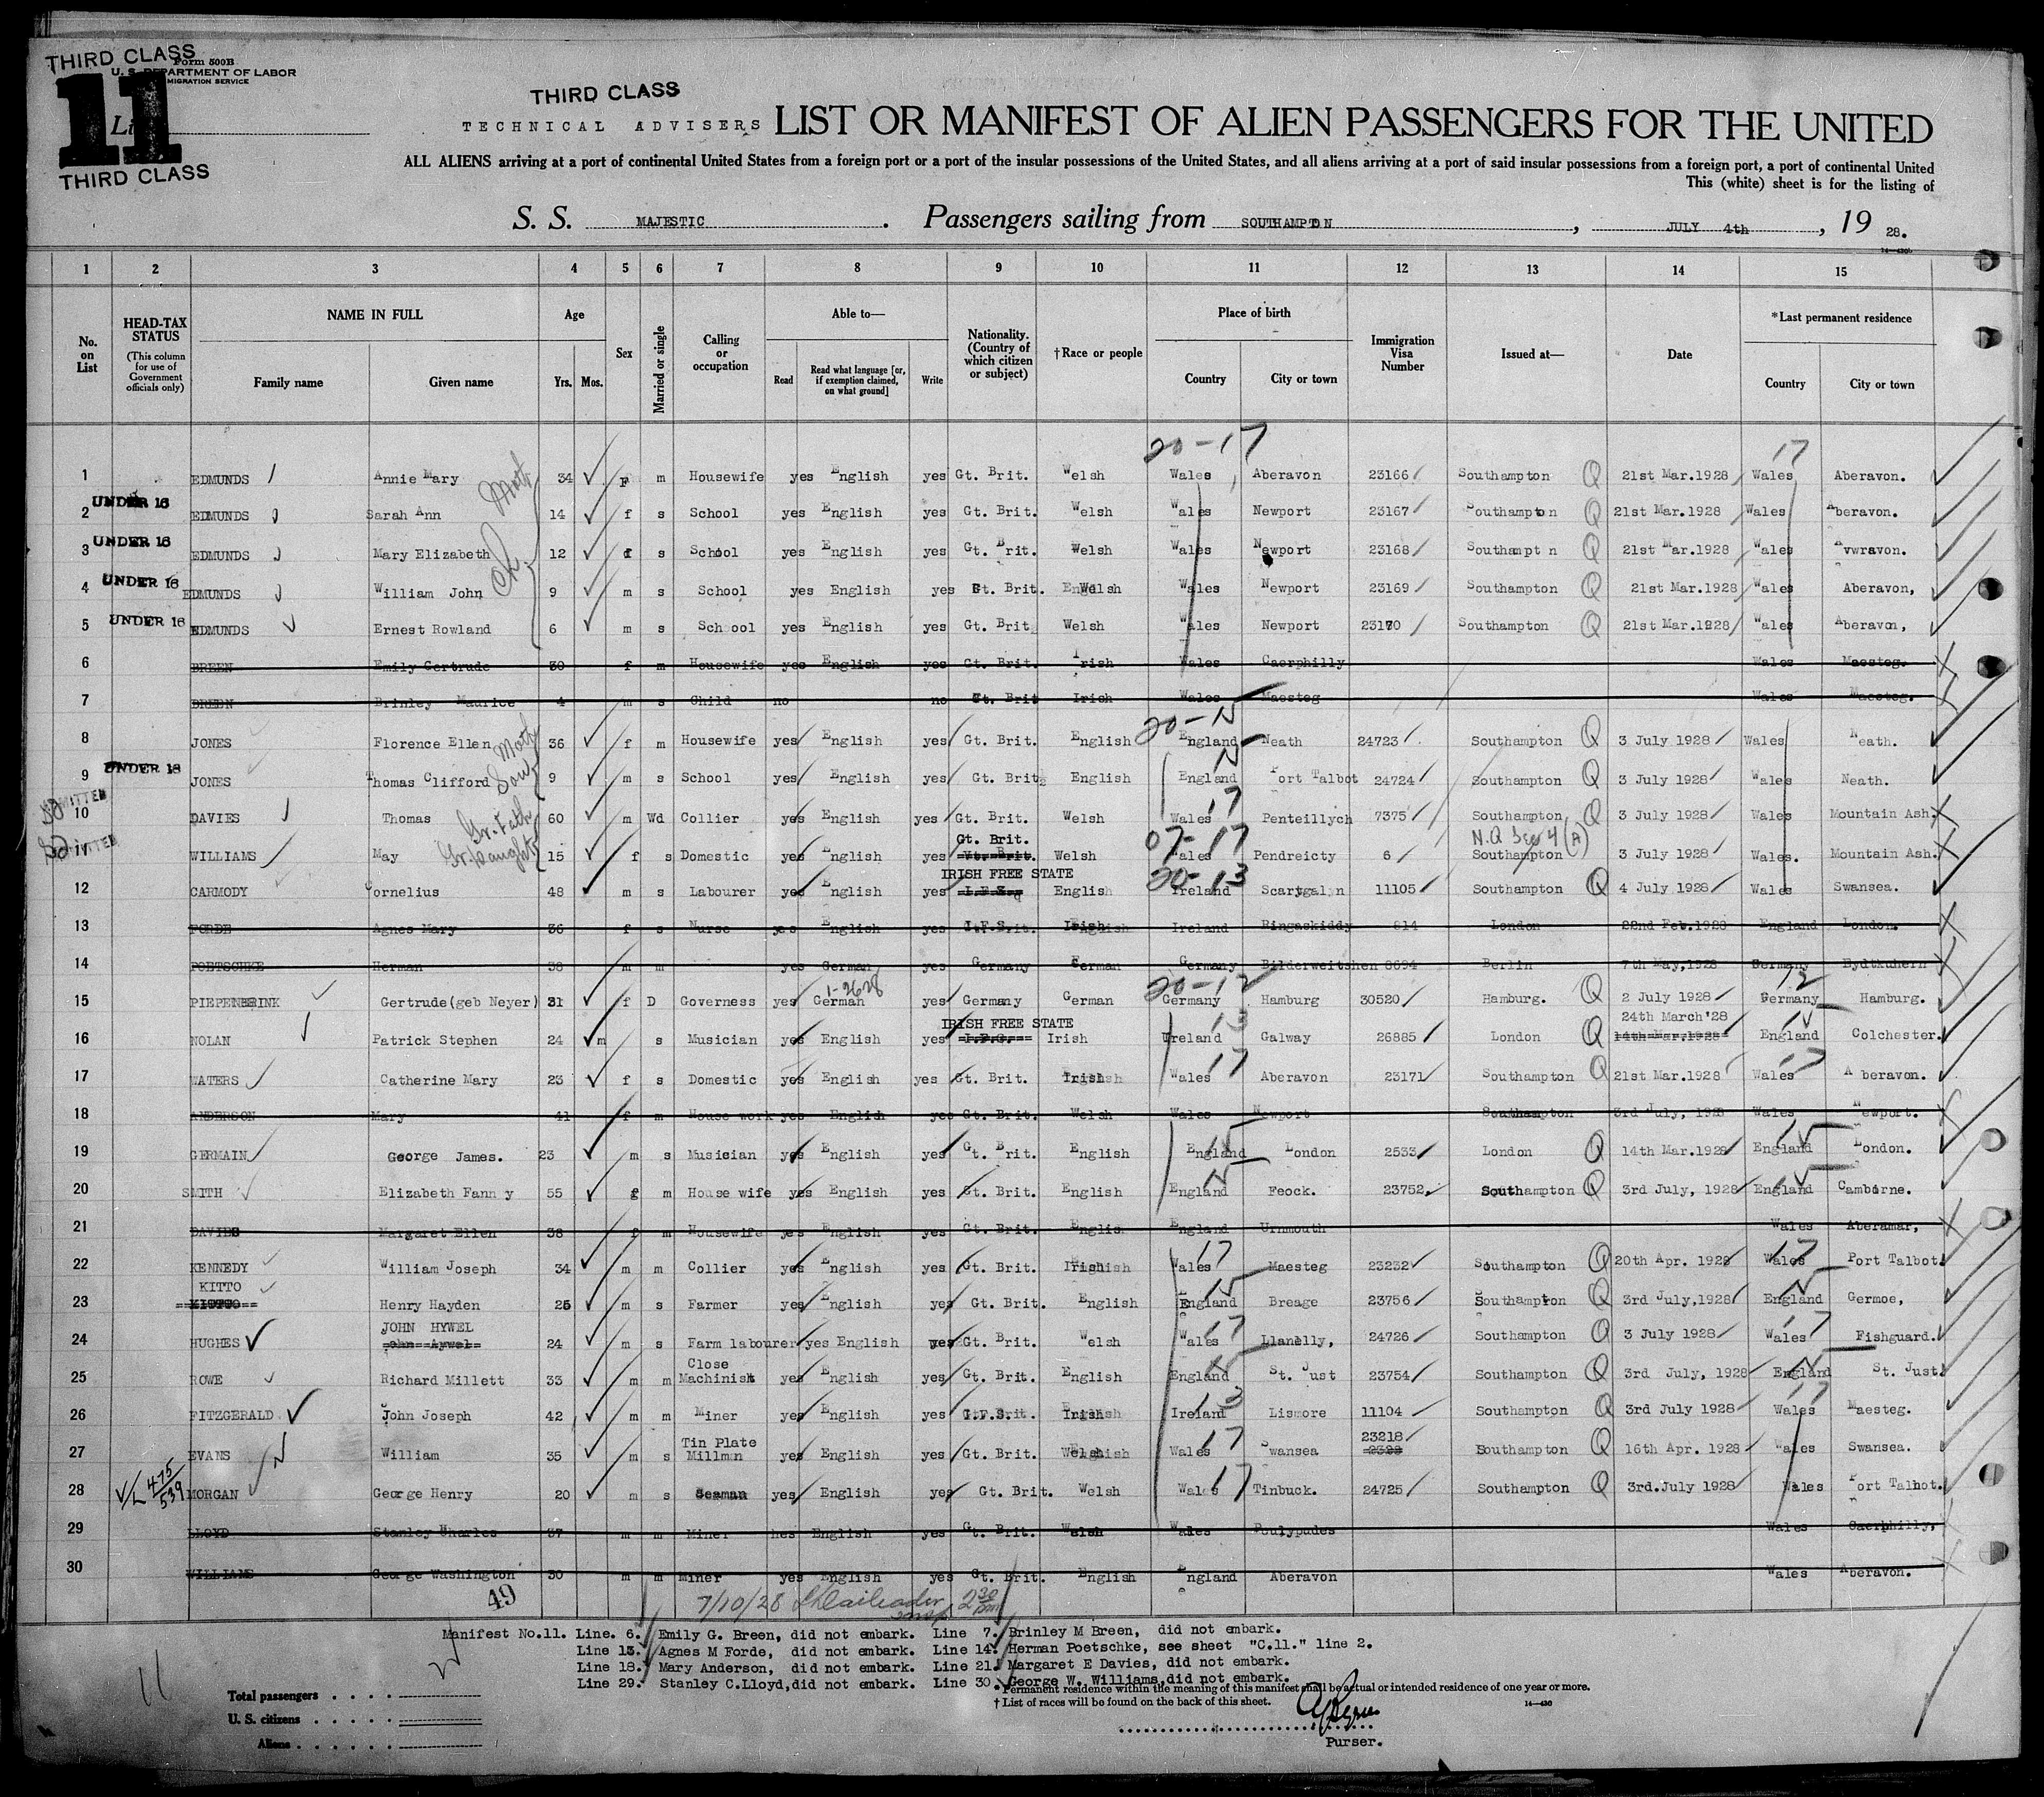 THIRD CLASS
Form 500B
U. S. DEPARTMENT OF LABOR
IMMIGRATION SERVICE
11
THIRD CLASS
THIRD CLASS
TECHNICAL ADVISERS LIST OR MANIFEST OF ALIEN PASSENGERS FOR THE UNITED
ALL ALIENS arriving at a port of continental United States from a foreign port or a port of the insular possessions of the United States, and all aliens arriving at a port of said insular possessions from a foreign port, a port of continental United
This (white) sheet is for the listing of
S. S. MAJESTIC. Passengers sailing from SOUTHAMPTON, JULY 4th, 19 28.
1 2 3 4 5 6 7 8 9 10 11 12 13 14 15
No. on List
HEAD-TAX STATUS (This column for use of Government officials only)
NAME IN FULL
Family name Given name
Age
Yrs. Mos.
Sex
Married or single
Calling or occupation
Able to—
Read
Read what language [or, if exemption claimed, on what ground]
Write
Nationality. (Country of which citizen or subject)
†Race or people
Place of birth
Country City or town
Immigration Visa Number
Issued at—
Date
*Last permanent residence
Country City or town
20-17 17
1 EDMUNDS Annie Mary 34 F m Housewife yes English yes Gt. Brit. Welsh Wales Aberavon 23166 Southampton Q 21st Mar.1928 Wales Aberavon.
UNDER 16
2 EDMUNDS Sarah Ann 14 f s School yes English yes Gt. Brit. Welsh Wales Newport 23167 Southampton Q 21st Mar.1928 Wales Aberavon.
UNDER 16
3 EDMUNDS Mary Elizabeth 12 f s School yes English yes Gt. Brit. Welsh Wales Newport 23168 Southampt n Q 21st Mar.1928 Wales Avwravon.
UNDER 16
4 EDMUNDS William John 9 m s School yes English yes Gt. Brit. Welsh Wales Newport 23169 Southampton Q 21st Mar.1928 Wales Aberavon,
UNDER 16
5 EDMUNDS Ernest Rowland 6 m s School yes English yes Gt. Brit. Welsh Wales Newport 23170 Southampton Q 21st Mar.1928 Wales Aberavon,
6 BREEN Emily Gertrude 30 f m Housewife yes English yes Gt. Brit. Irish Wales Caerphilly Wales Maesteg.
7 BREEN Brinley Maurice 4 m s Child no no Gt. Brit Irish Wales Maesteg Wales Maesteg.
8 JONES Florence Ellen Moth 36 f m Housewife yes English yes Gt. Brit. English England Neath 24723 Southampton Q 3 July 1928 Wales Neath.
UNDER 16
9 JONES Thomas Clifford Son 9 m s School yes English yes Gt. Brit. English England Port Talbot 24724 Southampton Q 3 July 1928 Wales Neath.
ADMITTED
10 DAVIES Thomas Gr. Fath 60 m Wd Collier yes English yes Gt. Brit. Welsh Wales 17 Penteillych 7375 Southampton Q 3 July 1928 Wales Mountain Ash.
ADMITTED Gt. Brit. 07-17 N.Q Sec 4 (A)
11 WILLIAMS May Gr. Daught 15 f s Domestic yes English yes Gt. Brit. Welsh Wales Pendreicty 6 Southampton 3 July 1928 Wales. Mountain Ash.
IRISH FREE STATE 20-13
12 CARMODY Cornelius 48 m s Labourer yes English yes I.F.S. English Ireland Scartgalen 11105 Southampton Q 4 July 1928 Wales Swansea.
13 FORDE Agnes Mary 36 f s Nurse yes English yes I.F.S. Irish Ireland Ringaskiddy 814 London 22nd Feb.1928 England London.
14 POETSCHKE Herman 38 m m yes German yes Germany German Germany Bilderweitshen 8694 Berlin 7th May,1928 Germany Eydtkuhern
1-2628 20-12 12
15 PIEPENBRINK Gertrude(geb Neyer) 31 f D Governess yes German yes Germany German Germany Hamburg 30520 Hamburg. Q 2 July 1928 Germany Hamburg.
IRISH FREE STATE 13 24th March'28
16 NOLAN Patrick Stephen 24 m s Musician yes English yes I.F.S. Irish Ireland Galway 26885 London Q 14th Mar.1928 England Colchester.
17 WATERS Catherine Mary 23 f s Domestic yes English yes Gt. Brit. Irish Wales 17 Aberavon 23171 Southampton Q 21st Mar.1928 Wales 17 A beravon.
18 ANDERSON Mary 41 f m House work yes English yes Gt. Brit. Welsh Wales Newport Southampton 3rd July, 1928 Wales Newport.
19 GERMAIN George James. 23 m s Musician yes English yes Gt. Brit. English England London 2533 London Q 14th Mar.1928 England London.
20 SMITH Elizabeth Fann y 55 f m House wife yes English yes Gt. Brit. English England Feock. 23752 Southampton Q 3rd July, 1928 England Camborne.
21 DAVIES Margaret Ellen 38 f m Housewife yes English yes Gt. Brit. English England Urnmouth Wales Aberamar,
22 KENNEDY William Joseph 34 m m Collier yes English yes Gt. Brit. Irish Wales 17 Maesteg 23232 Southampton Q 20th Apr. 1928 Wales 17 Port Talbot.
KITTO
23 KITTO Henry Hayden 26 m s Farmer yes English yes Gt. Brit. English England Breage 23756 Southampton Q 3rd July,1928 England Germoe,
JOHN HYWEL
24 HUGHES John Aywel 24 m s Farm labourer yes English yes Gt. Brit. Welsh Wales 17 Llanelly, 24726 Southampton Q 3 July 1928 Wales 17 Fishguard.
Close
25 ROWE Richard Millett 33 m m Machinist yes English yes Gt. Brit. English England St. Just 23754 Southampton Q 3rd July, 1928 England St. Just.
26 FITZGERALD John Joseph 42 m m Miner yes English yes I.F.S. Irish Ireland 13 Lismore 11104 Southampton Q 3rd July 1928 Wales 17 Maesteg.
Tin Plate 23218
27 EVANS William 35 m s Millman yes English yes Gt. Brit. Welsh Wales 17 Swansea 2328 Southampton Q 16th Apr. 1928 Wales Swansea.
V/L 475/539
28 MORGAN George Henry 20 m s Seaman yes English yes Gt. Brit. Welsh Wales 17 Tinbuck. 24725 Southampton Q 3rd.July 1928 Wales Port Talbot.
29 LLOYD Stanley Charles 37 m m Miner hes English yes Gt. Brit. Welsh Wales Poulypudes Wales Caerphilly,
30 WILLIAMS George Washington 30 m m Miner yes English yes Gt. Brit. English England Aberavon Wales Aberavon.
49 7/10/28 2 30 pm
Manifest No.11. Line. 6. Emily G. Breen, did not embark. Line 7. Brinley M Breen, did not embark.
Line 13. Agnes M Forde, did not embark. Line 14. Herman Poetschke, see sheet "C.11." line 2.
Line 18. Mary Anderson, did not embark. Line 21. Margaret E Davies, did not embark.
Line 29. Stanley C.Lloyd,did not embark. Line 30. George W. Williams,did not embark.
*Permanent residence within the meaning of this manifest shall be actual or intended residence of one year or more.
†List of races will be found on the back of this sheet.
11
Total passengers
U. S. citizens
Aliens
Purser.